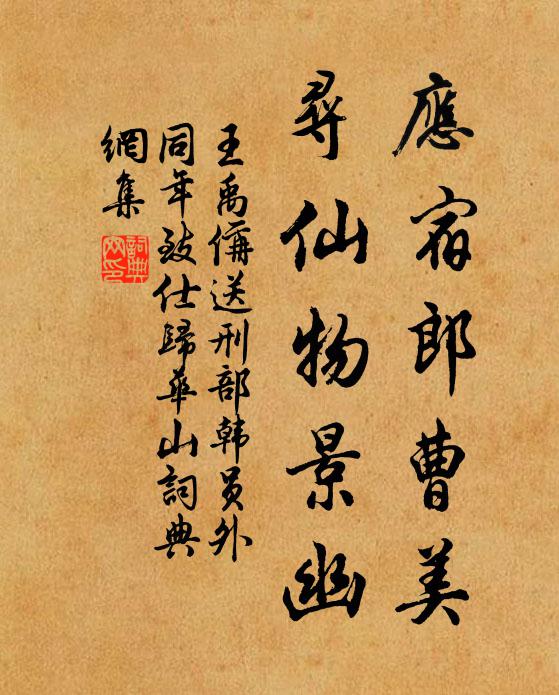 應宿郎曹美
尋仙物景幽
王禹偁送刑部韩员外
同年致仕歸華山詞典
網集
詞典
网印